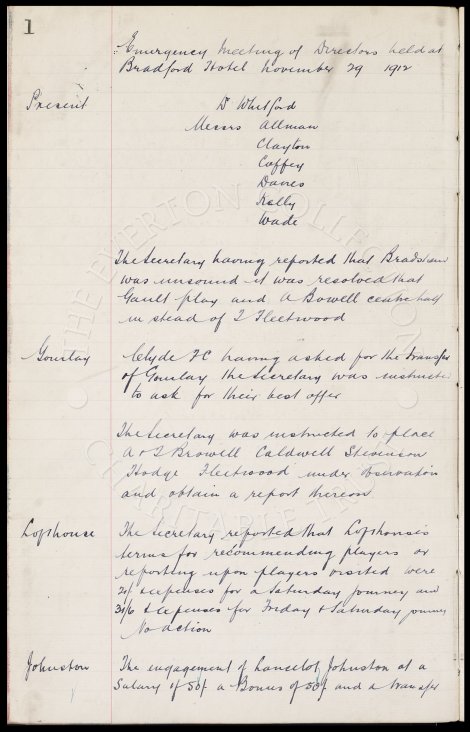 1
Emergency Meeting of Directors held at
Bradford Hotel November 29 1912
Present
Dr Whitford
Messrs Allman
Clayton
Coffey
Davies
Kelly
Wade
The Secretary having reported that Bradshaw
was unsound it was resolved that
Gault play and A Browell centre half
instead of T Fleetwood
Gourlay
Clyde FC having asked for the transfer
of Gourlay the Secretary was instructed
to ask for their best offer
The Secretary was instructed to place
A & T Browell Caldwell Stevenson
Hodge Fleetwood under observation
and obtain a report thereon
Lofthouse
The Secretary reported that Lofthouse's
terms for recommending players or
reporting upon players visited were
& expenses for a Saturday journey and
& expenses for Friday & Saturday journey
No action
Johnston
The engagement of Lancelot Johnston at a
Salary of 50/- a Bonus of and a transfer
THE EVERTON COLLECTION
CHARITABLE TRUST